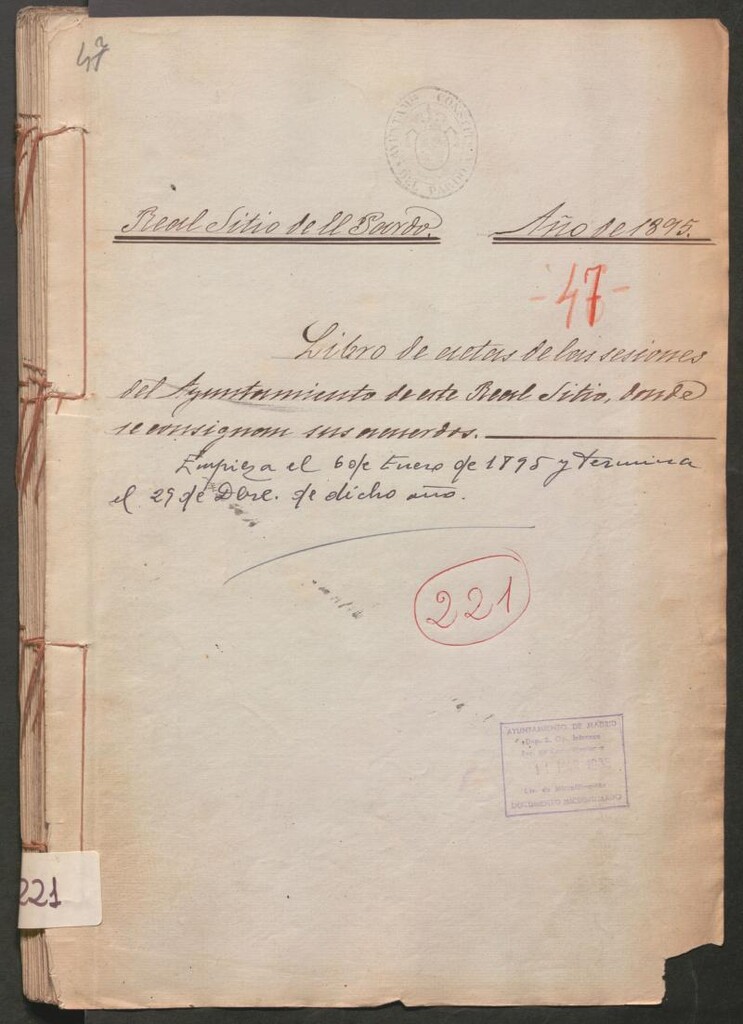 47
AYUNTAMTO CONSTIT
DEL PARDO
Real Sitio de ll Pardo. Año de 1895.
-47-
Libro de actas de las sesiones
del Ayuntamiento de este Real Sitio, donde
se consignan sus acuerdos.
Empieza el 6 de Enero de 1895 y termina
el 29 de Dbre. de dicho año.
221
AYUNTAMIENTO DE MADRID
DOCUMENTO MICROFILMADO
221